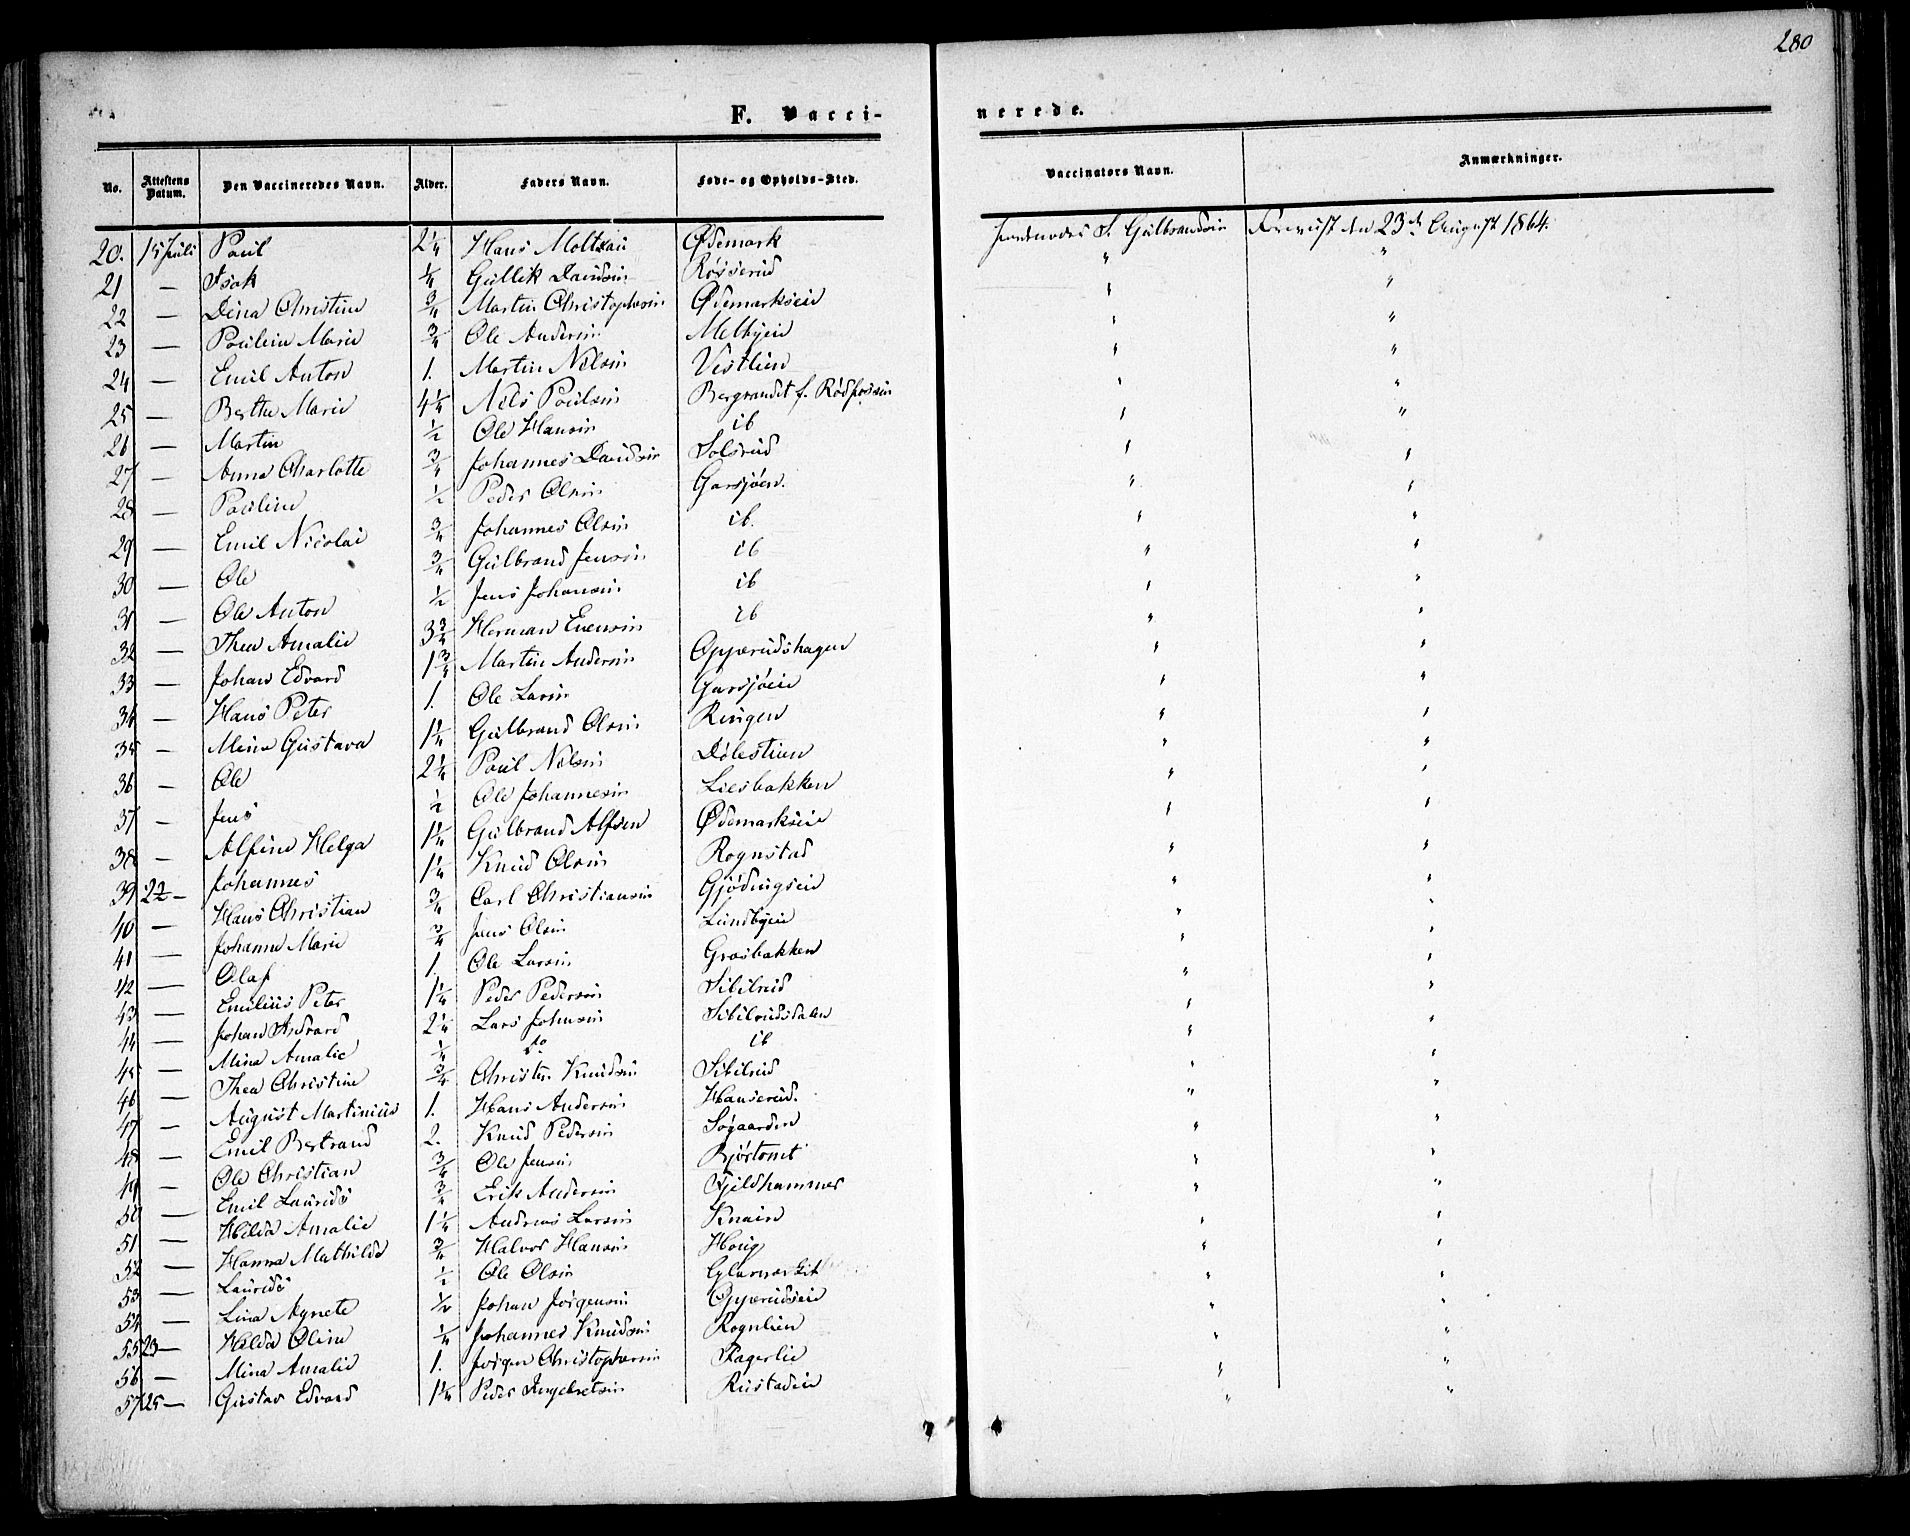 280
F. Vacci-
nerede.
No. Attestens Datum. Den Vaccineredes Navn. Alder. Faders Navn. Føde- og Opholds-Sted. Vaccinators Navn. Anmærkninger.
20. 15 Juli Paul 2 1/4 Hans Moltzau Ødemark S. Gulbrandsen Forevist den 23de August 1864.
21 — Isak 1/4 Gullik Davidsen Røsserud " "
22 — Dina Christine 3/4 Martin Christophersen Ødemarkseie " "
23 — Pauline Marie 3/4 Ole Andersen Melbyeie " "
24 — Emil Anton 1. Martin Nilsen Vestlien " "
25 — Berthe Marie 4 1/4 Nils Paulsen Bergrandit f. Rødfossen " "
26 — Martin 1/2 Ole Hansen ib " "
27 — Anna Charlotte 3/4 Johannes Davidsen Solsrud " "
28 — Pauline 1/2 Peder Olsen Garsjøen. " "
29 — Emil Nicolai 3/4 Johannes Olsen ib. " "
30 — Ole 3/4 Gulbrand Jensen ib " "
31 — Ole Anton 1/2 Jens Johansen ib " "
32 — Thea Amalie 3 3/4 Herman Evensen ib " "
33 — Johan Edvard 1 3/4 Martin Andersen Opperudshagen " "
34 — Hans Peter 1. Ole Larsen Garsjøeie " "
35 — Mina Gustava 1 1/4 Gulbrand Olsen Ringen " "
36 — Ole 2 1/4 Paul Nilsen Dølestien " "
37 — Jens 1/2 Ole Johannesen Liesbakken " "
38 — Alfine Helga 1 1/4 Gulbrand Alfsen Ødemarkseie " "
39 22 — Johannes 1 1/4 Knud Olsen Rognstad " "
40 — Hans Christian 3/4 Carl Christiansen Gjødingseie " "
41 — Johanne Marie 3/4 Jens Olsen Lundbyeie " "
42 — Olaf 1. Ole Larsen Grasbakken " "
43 — Emilius Peter 1 1/4 Peder Pedersen Sibilrud " "
44 — Johan Andvard 2 1/4 Lars Johnsen Sibilrudsdalen " "
45 — Mina Amalie 1/4 do ib " "
46 — Thea Christine 3/4 Christen Knudsen Sibilrud " "
47 — August Martinius 1. Hans Andersen Hanserud. " "
48 — Emil Bertrand 2. Knud Pedersen Søgaarden " "
49 — Ole Christian 3/4 Ole Jensen Bjørtomt " "
50 — Emil Laurids 3/4 Erik Andersen Fjeldhammer " "
51 — Hilda Amalie 1 1/4 Andreas Larsen Knain " "
52 — Hanna Mathilde 3/4 Halvor Hansen Houg " "
53 — Laurids 1/2 Ole Olsen " "
54 — Lina Agnete 1/2 Johan Jørgensen Opperudseie " "
55 23 — Hilda Oline 1/4 Johannes Knudsen Rognlien " "
56 — Mina Amalie 1. Jørgen Christophersen Fagerlie " "
57 25 — Gustav Edvard 1 1/4 Peder Ingebretsen Rustadeie " "